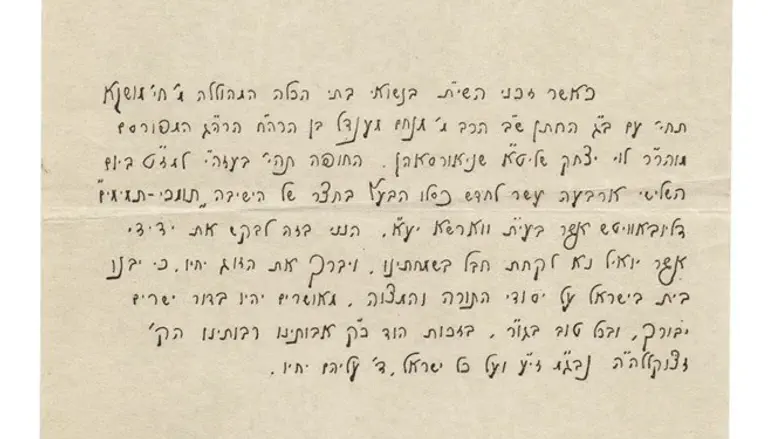 כאשר זכני השי״ת בנשואי בתי הכלה המהוללה מ׳ חי׳ מושקא
תחי׳ עם ב״ג החתן ש״ב הרב מ׳ מנחם מענדל בן הרה״ח הרה״ג המפורסם
מוהר״ר לוי יצחק שליט״א שניאורסאהן. החופה תהי׳ בעזה״י למז״ט ביום
השלישי ארבעה עשר לחדש כסלו הבע״ל בחצר של הישיבה „תומכי-תמימים״
דליובאוויטש אשר בעי״ת ווארשא יע״א. הנני בזה לבקש את ידידי
אשר יואיל נא לקחת חבל בשמחתינו, ויברך את הזוג יחיו, כי יבנו
בית בישראל על יסודי התורה והמצוה. מאושרים יהיו בדור ישרים
יבורך, ובכל טוב בגו״ר. בזכות הוד כ״ק אבותינו רבותינו הק׳
זצוקללה״ה נבג״מ זי״ע ועל כל ישראל, ד׳ עליהם יחיו.